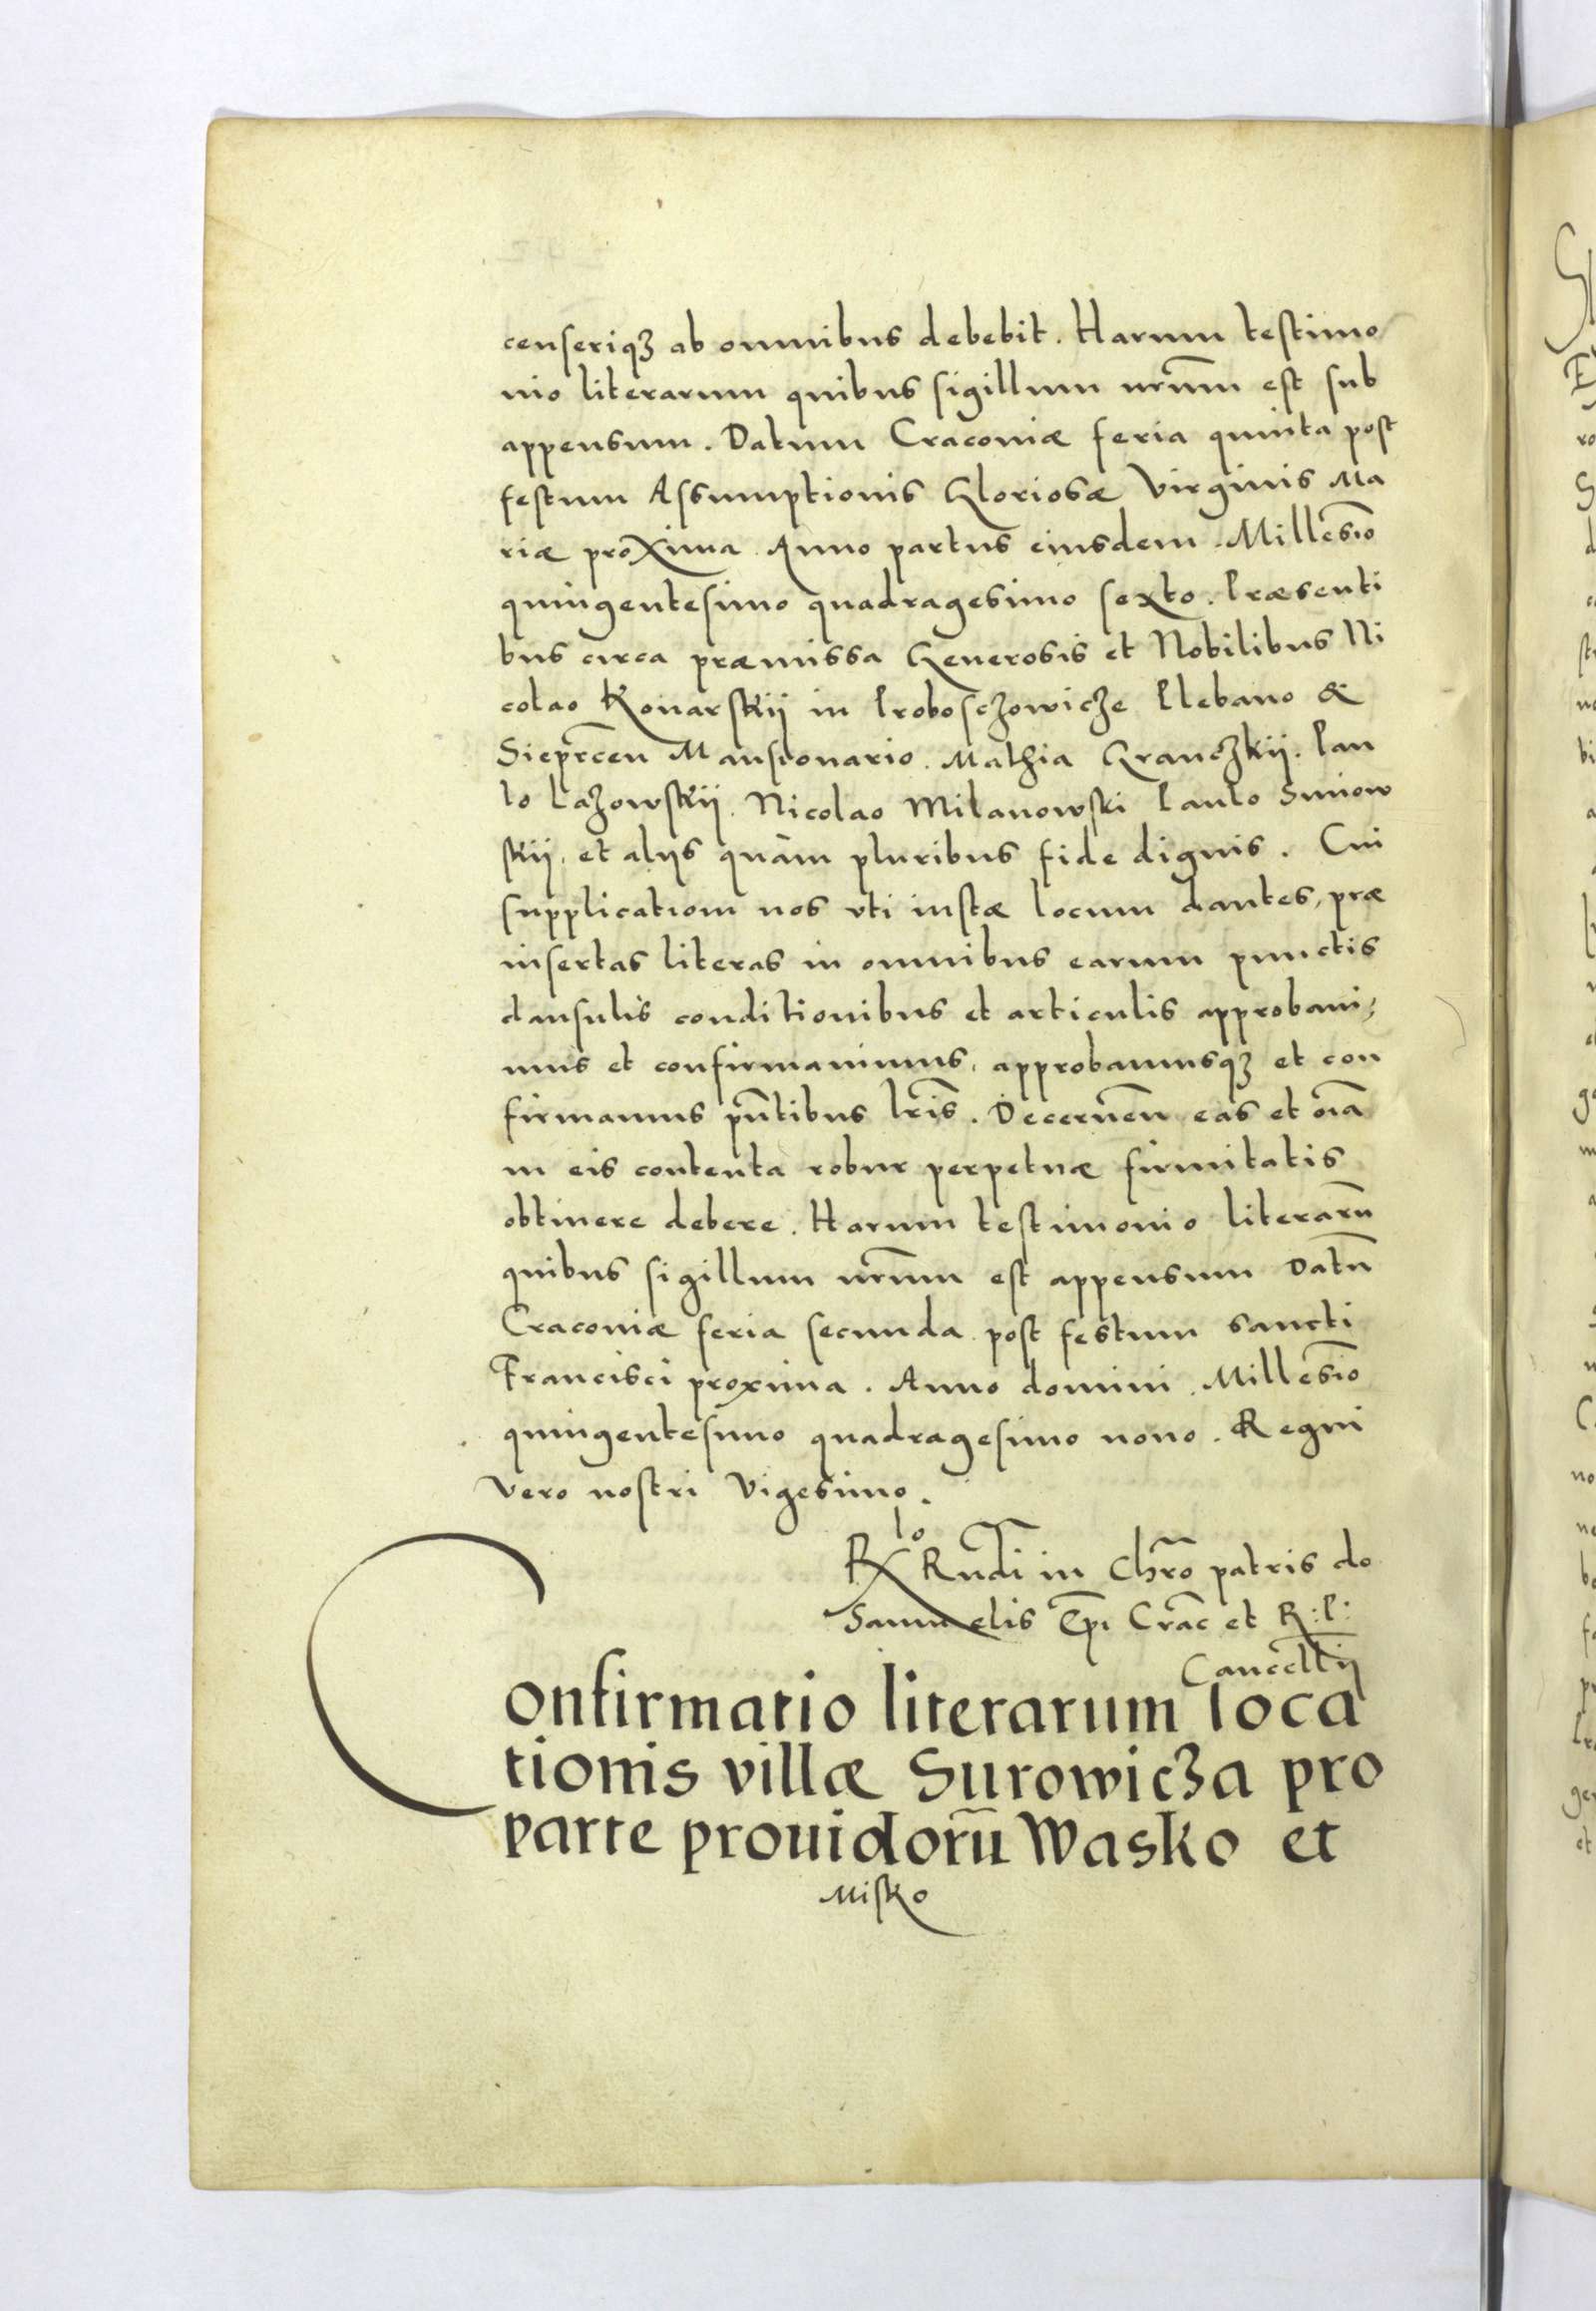 censeriqȝ ab omnibus debebit. Harum testimo
nio literarum quibus sigillum nr̃um est sub
appensum. Datum Cracoviæ feria quinta post
festum Assumptionis Gloriosæ Virginis Ma
riæ proxima. Anno partus eiusdem. Millesĩo
quingentesimo quadragesimo sexto. Præsenti
bus circa præmissa Generosis et Nobilibus Ni
colao Konarskij in Probosczowicze Plebano &
Sieprceñ Mansionario. Mathia Granczkij. Pau
lo Lazowskij. Nicolao Milanowski Paulo Suniow
skij, et alijs quàm pluribus fide dignis. Cui
supplicationi nos vti iustæ locum dantes, præ
insertas literas in omnibus earum punctis
clausulis conditionibus et articulis approbaui,
mus et confirmauimus, approbamusqȝ et con
firmamus pñtibus lr̃is. Decerneñ eas et oĩa
in eis contenta robur perpetuæ firmitatis
obtinere debere. Harum testimonio literarũ
quibus sigillum nr̃um est appensum Datũ
Cracoviæ feria secunda post festum sancti
Francisci proxima. Anno domini. Millesĩo
quingentesimo quadragesimo nono. Regni
vero nostri Vigesimo.
Rlo Rñdi in Chr̃o patris do
Samuelis Ep̃i Crac̃ et R: P:
Cancellĩj
Confirmatio literarum loca
tionis villæ Surowicza pro
parte prouidorũ Wasko et
Misko